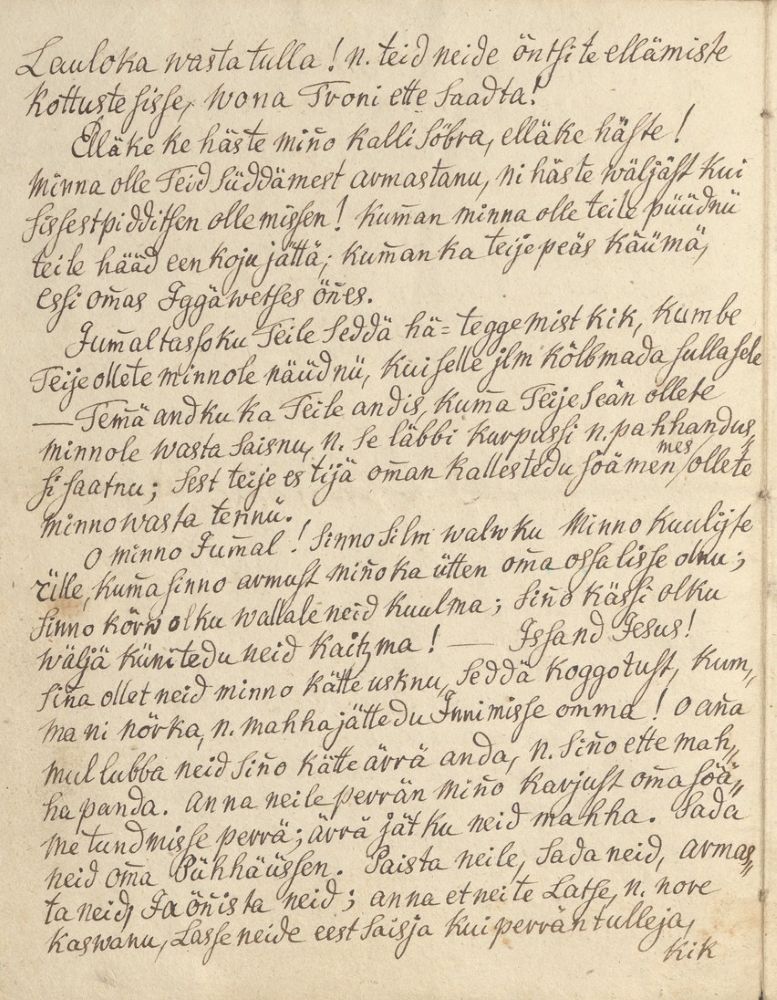 Lauloka wasta tulla! n. teid neide öntsite ellämiste
kottuste sisse, wona Troni ette saadta!
Elläke ke häste miño kalli söbra, elläke häste!
Minna olle Teid süddämest armastanu, ni häste wäljäst kui
sissestpidditsen olle missen! kum̄an minna olle teile püüdnü
teile hääd een koju jättä; kum̄an ka teije peäs käümä,
essi om̄as Iggäwetses öñes.
Jum̄al tassoku Teile seddä hä= teggemist kik, kumbe
Teije ollete minnole näüdnü, kui selle jlm kölbmada sullasele
— Tem̄ä andku ka Teile andis, kum̄a Teije seän ollete
minnole wasta saisnu, n. se läbbi kurpussi n. pahhandus„
si saatnu; sest teije es tijä om̄an kallestedu söämen mes ollete
minno wasta tennü.
O minno Jum̄al! sinno silm walwku Minno kuulijste
ülle, kum̄a sinno armust miño ka ütten om̄a ossalisse olnu;
sinno körw olku wallale neid kuulma; siño kässi olku
wäljä künitedu neid kaitzma! — Issand Jesus!
siña ollet neid minno kätte usknu, seddä koggotust, kum„
ma ni nörka, n. mahhajättedu Innimisse omma! O aña
mul lubba neid siño kätte ärrä anda, n. siño ette mah„
ha panda. Anna neile perrän miño karjust om̄a söä„
me tundmisse perrä; ärrä jätku neid mahha. Sada
neid om̄a Pühhäüssen. Paista neile, sada neid, armas„
ta neid, Ja öñista neid; anna et neite Latse, n. nore
kaswanu, Lasse neide eest saisja kui perräntulleja,
kik